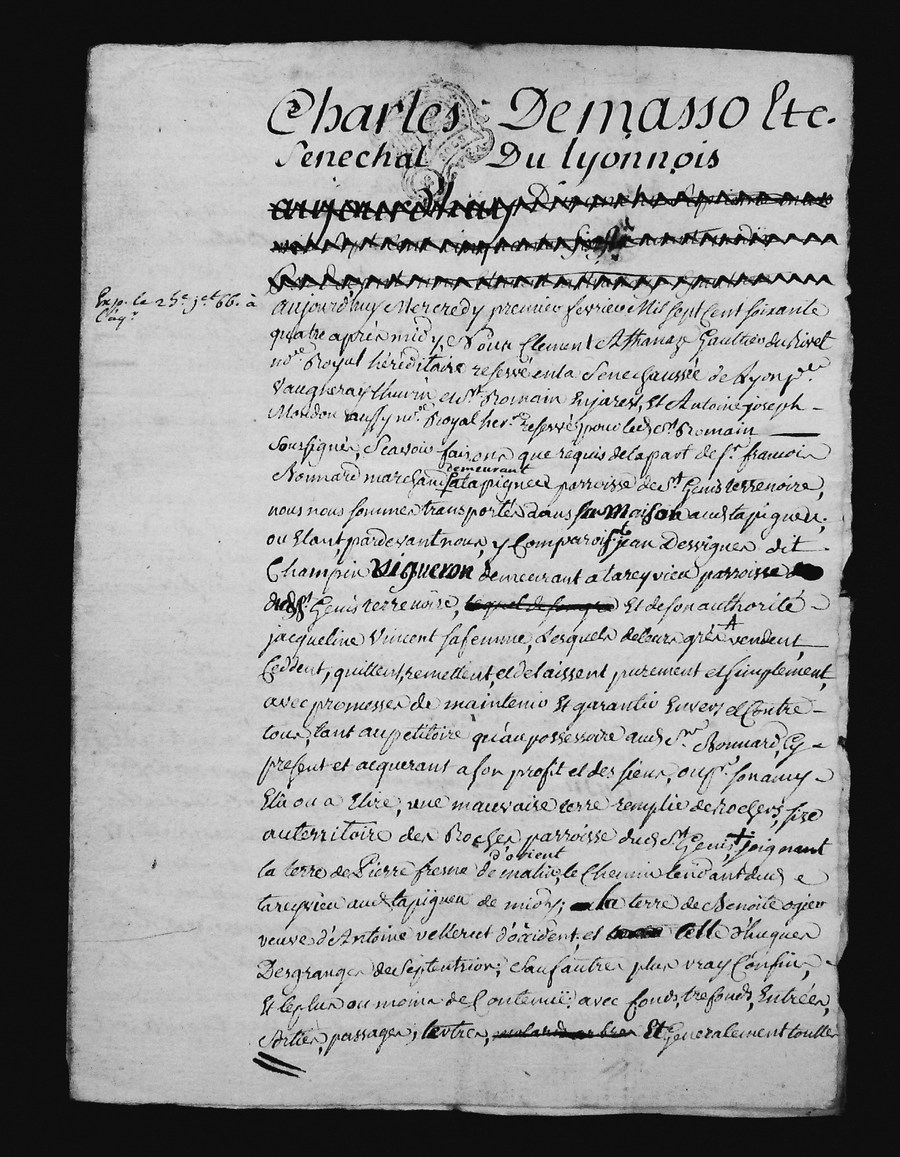 Charles Demasso Etc.
Senechal Du lyonnois
aujourdhuy
Exp. le 25e jet 66. à
aujourd'huy Mercredy premier fevrier Mil sept cent soixante
quatre après midy, Nous Clement Athanaze Gaultier du Rivet
nore Royal héréditaire reservé en la Senechaussée de Lyon pr le
Vaugneray thurin et St Romain En jarest, Et Antoine joseph
Mondon aussy nore Royal herre reservé pour led. St Romain
Soussignés, Scavoir faisons que requis de la part de sr françois
Bonnard marchand demeurant a la pignee parroisse de St Genis terrenoire,
nous nous sommes transportés dans sa Maison aud. lapigneu,
ou Etant, pardevant nous, y Comparoist jean Dessignes dit
Champin Vigneron demeurant a lareyvieu parroisse
dud. St Genis terrenoire, Et de son authorité
jacqueline Vincent sa femme, Lesquels de leurs grés vendent,
Ceddent, quittent, remettent, et delaissent purement et simplement,
avec promesses de maintenir Et garantir Envers et Contre
tous, tant au petitoire qu'au possessoire aud. Sr Bonnard, Cy
present et acquerant a son profit et des siens, ou sr. son amy
Elû ou a Elire, une mauvaise terre remplie de rochers, size
au territoire des Roches parroisse dud. St Genis, joignant
la terre de Pierre fresne d'orient de matin, le Chemin tendant dud.
lareyvieu aud. lapigneu de midy; la terre de Benoite ogier
veuve d'Antoine velleret d'occident, et Celle d'hugues
Desgranges de Septentrion; Sauf autres plus vrays Confins,
Et le plus ou moins de Contenüe; avec fonds, trefonds, Entrées,
Sorties, passages, Et Generalement touttes